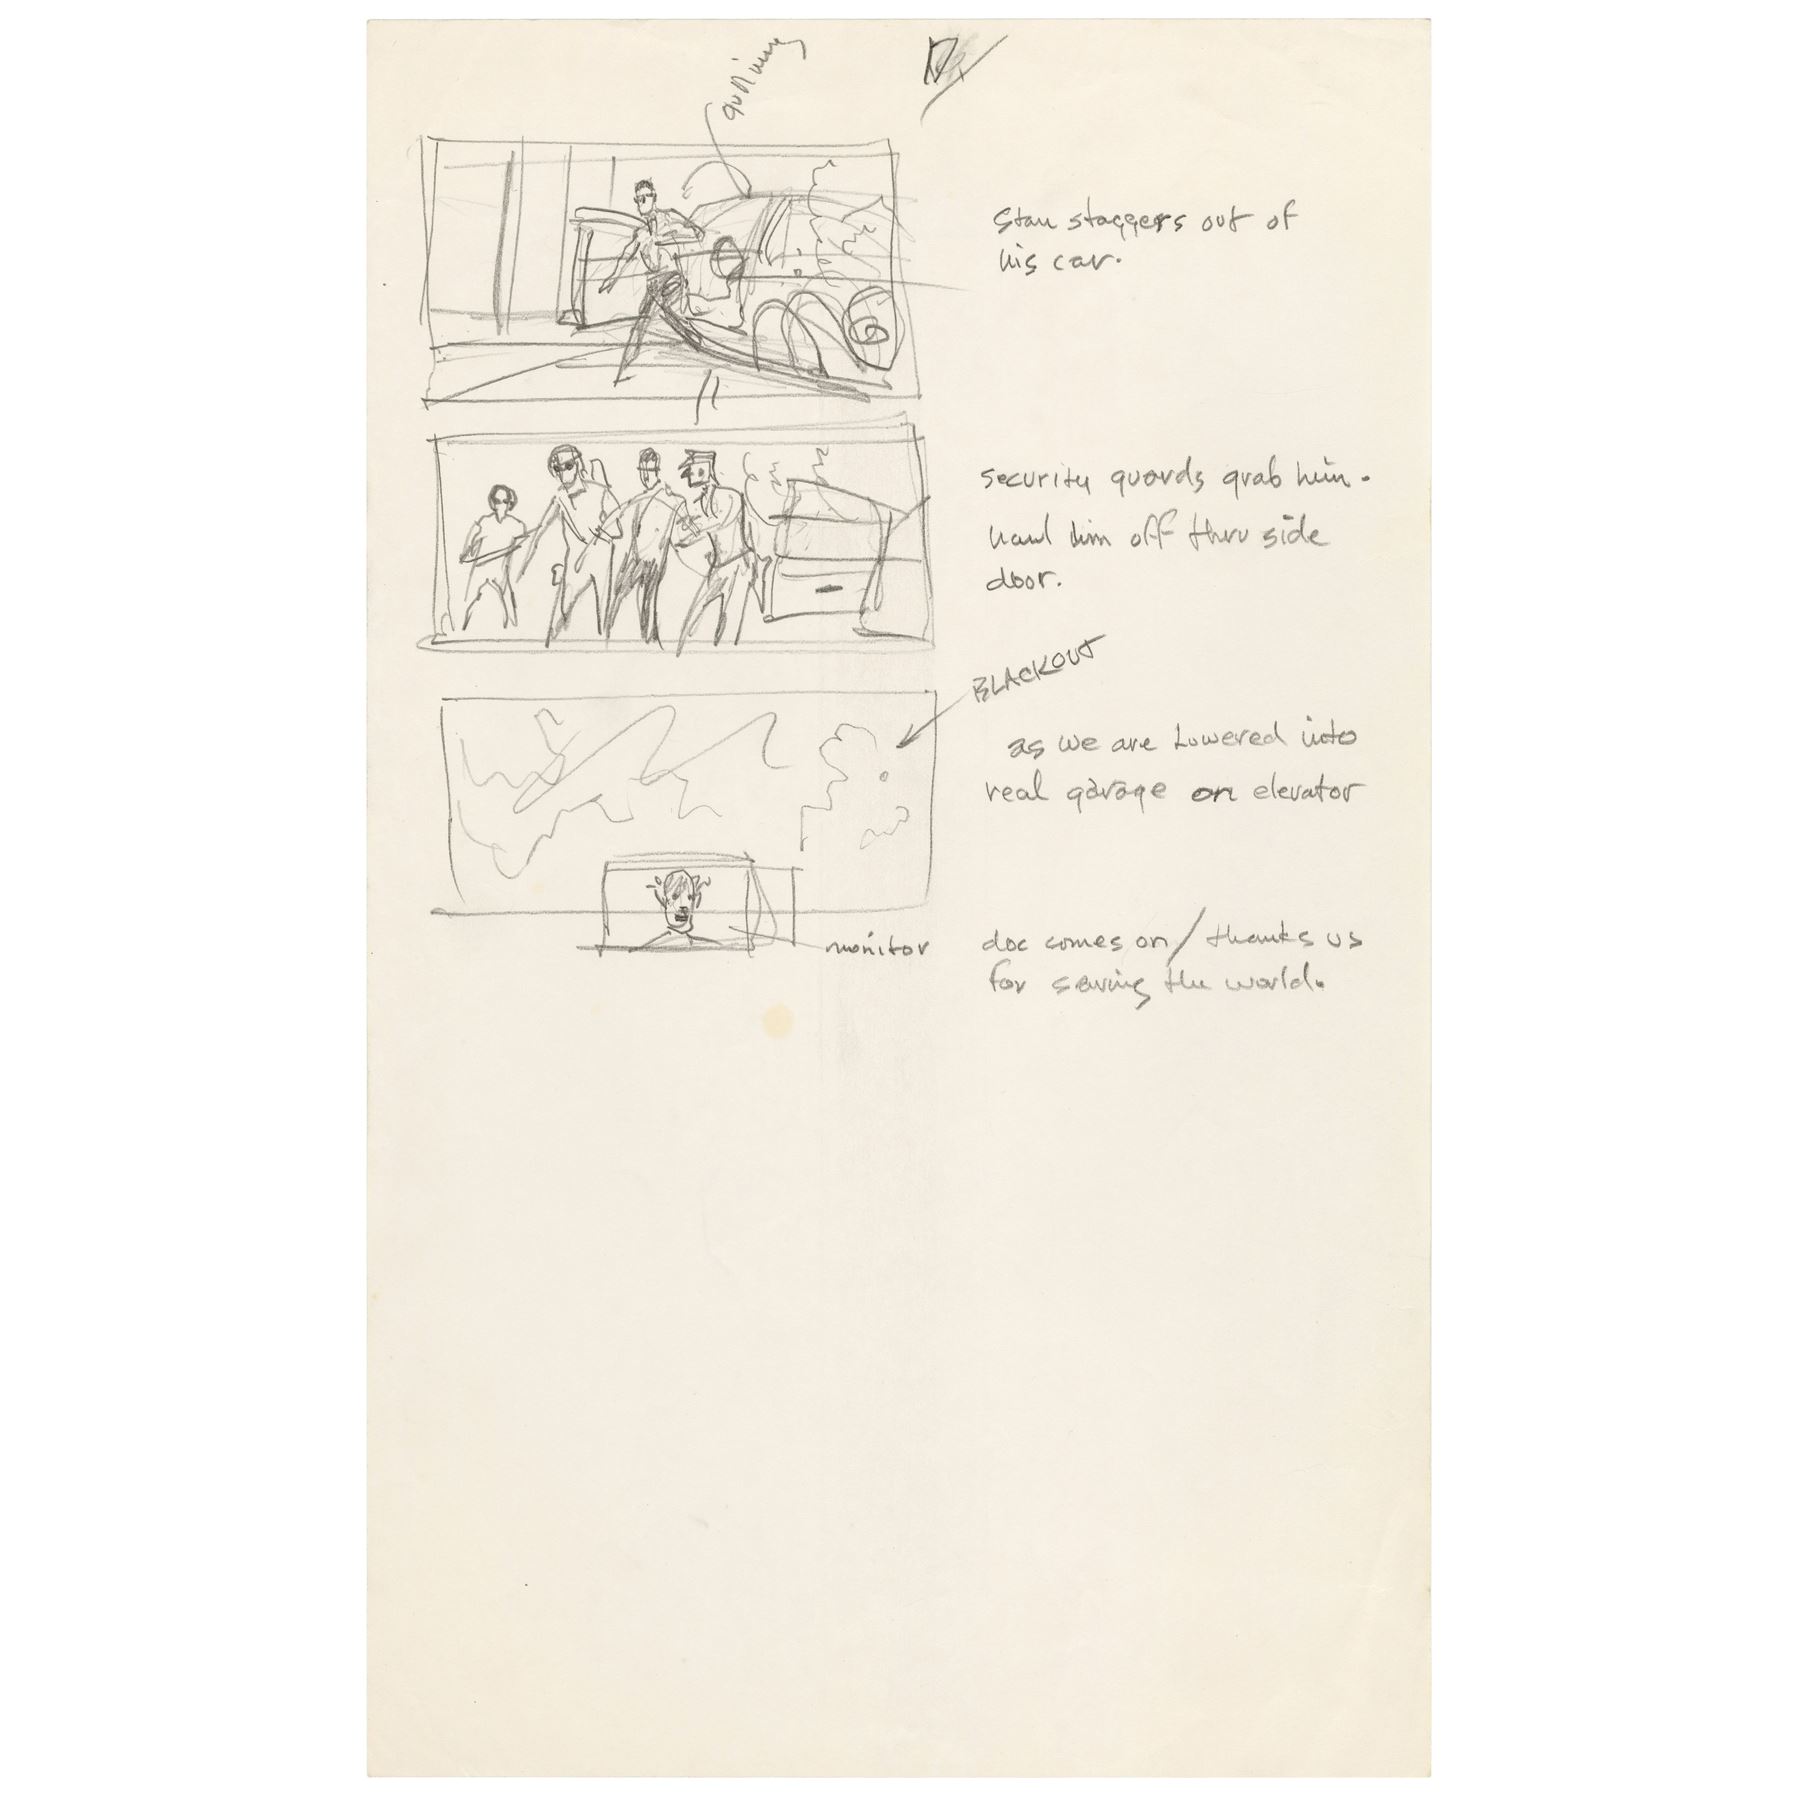 Stan staggers out of
his car.
security guards grab him.
haul him off thru side
door.
BLACKOUT
as we are Lowered into
real garage on elevator
monitor
doc comes on / thanks us
for saving the world.